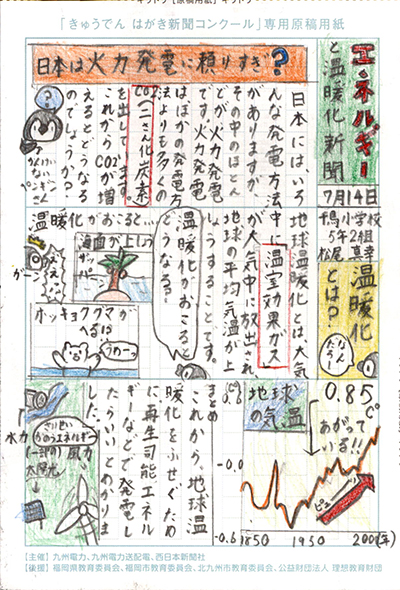 「きゅうでん はがき新聞コンクール」専用原稿用紙
エネルギー
と温暖化新聞
7月14日
千鳥小学校
5年2組
松尾 真幸
日本は火力発電に頼りすぎ?
日本には、いろ
んな発電方法
がありますが、
その中のほとん
どが火力発電
です。火力発電
はほかの発電方
法よりも多くの
CO²(二さん化炭素)
を出してます。
これからCO²が増
えるとどうなる
のでしょうか?
?
ペンギン
さん
温暖化
とは?
なん
だろう
地球温暖化とは、大気
中に温室効果ガス
が大気中に放出され
地球の平均気温が上
しょうすることです。
温暖化がおこると
どうなる?
温暖化がおこると…
海面が上しょう
ザッパーン
ガーン
ホッキョクグマが
へる!!
うわーっ
地球
の気温
(C°)
0.85
C°
あがって
いる!!
0.8
-0.0
-0.6
1850
1950
2000(年)
まとめ
これから、地球温
暖化をふせぐため
に再生可能エネル
ギーなどで発電し
たらいいとわかりま
した。
さいせいかのうエネルギー
(一部の)
水力
風力
太陽光
【主催】九州電力、九州電力送配電、西日本新聞社
【後援】福岡県教育委員会、福岡市教育委員会、北九州市教育委員会、公益財団法人 理想教育財団